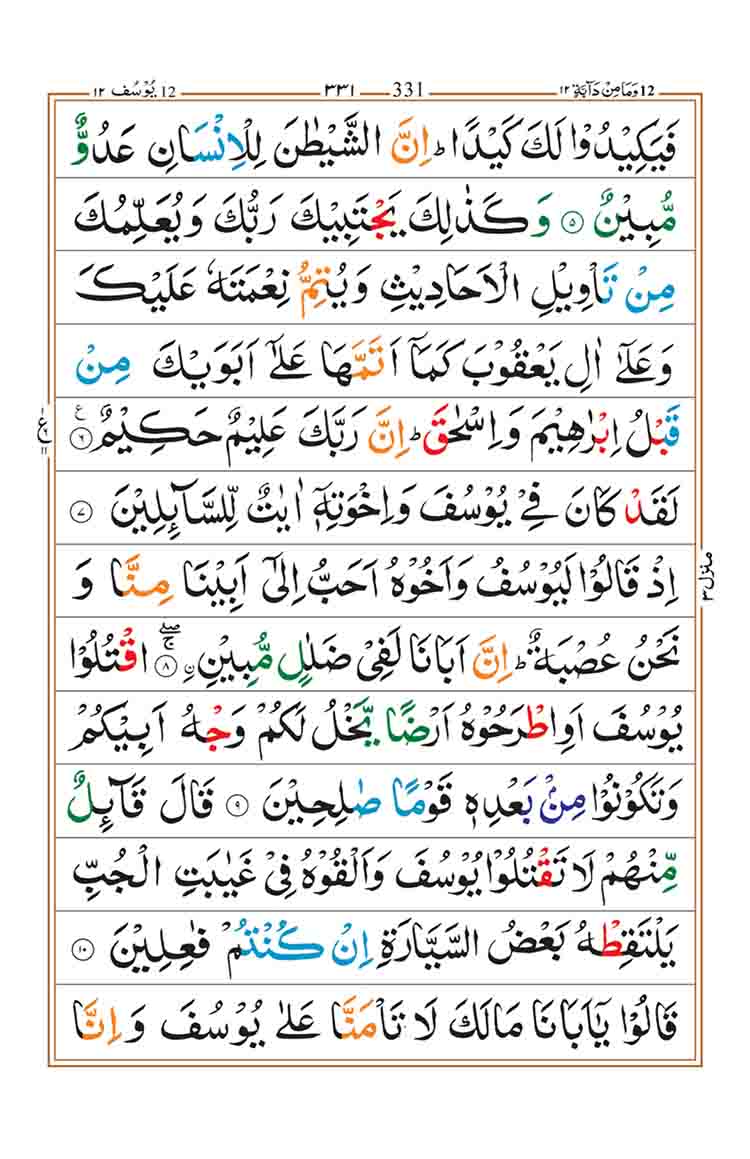 12 وَمَا مِنْ دَآبَّةٍ ١٢ 331 ٣٣١ 12 يُوْسُف ١٢
فَيَكِيْدُوْا لَكَ كَيْدًا ؕ اِنَّ الشَّيْطٰنَ لِلْاِنْسَانِ عَدُوٌّ
مُّبِيْنٌ ۝۵ وَ كَذٰلِكَ يَجْتَبِيْكَ رَبُّكَ وَ يُعَلِّمُكَ
مِنْ تَاْوِيْلِ الْاَحَادِيْثِ وَ يُتِمُّ نِعْمَتَهٗ عَلَيْكَ
وَ عَلٰۤى اٰلِ يَعْقُوْبَ كَمَاۤ اَتَمَّهَا عَلٰۤى اَبَوَيْكَ مِنْ
قَبْلُ اِبْرٰهِيْمَ وَ اِسْحٰقَ ؕ اِنَّ رَبَّكَ عَلِيْمٌ حَكِيْمٌ ۝۶ ع
لَقَدْ كَانَ فِيْ يُوْسُفَ وَ اِخْوَتِهٖۤ اٰيٰتٌ لِّلسَّآىِٕلِيْنَ ۝۷
اِذْ قَالُوْا لَيُوْسُفُ وَ اَخُوْهُ اَحَبُّ اِلٰۤى اَبِيْنَا مِنَّا وَ
نَحْنُ عُصْبَةٌ ؕ اِنَّ اَبَانَا لَفِيْ ضَلٰلٍ مُّبِيْنِ ۝۸ۖۚ اقْتُلُوْا
يُوْسُفَ اَوِ اطْرَحُوْهُ اَرْضًا يَّخْلُ لَكُمْ وَجْهُ اَبِيْكُمْ
وَ تَكُوْنُوْا مِنْۢ بَعْدِهٖ قَوْمًا صٰلِحِيْنَ ۝۹ قَالَ قَآىِٕلٌ
مِّنْهُمْ لَا تَقْتُلُوْا يُوْسُفَ وَ اَلْقُوْهُ فِيْ غَيٰبَتِ الْجُبِّ
يَلْتَقِطْهُ بَعْضُ السَّيَّارَةِ اِنْ كُنْتُمْ فٰعِلِيْنَ ۝۱۰
قَالُوْا يٰۤاَبَانَا مَا لَكَ لَا تَاْمَنَّا عَلٰى يُوْسُفَ وَ اِنَّا
منزل ٣